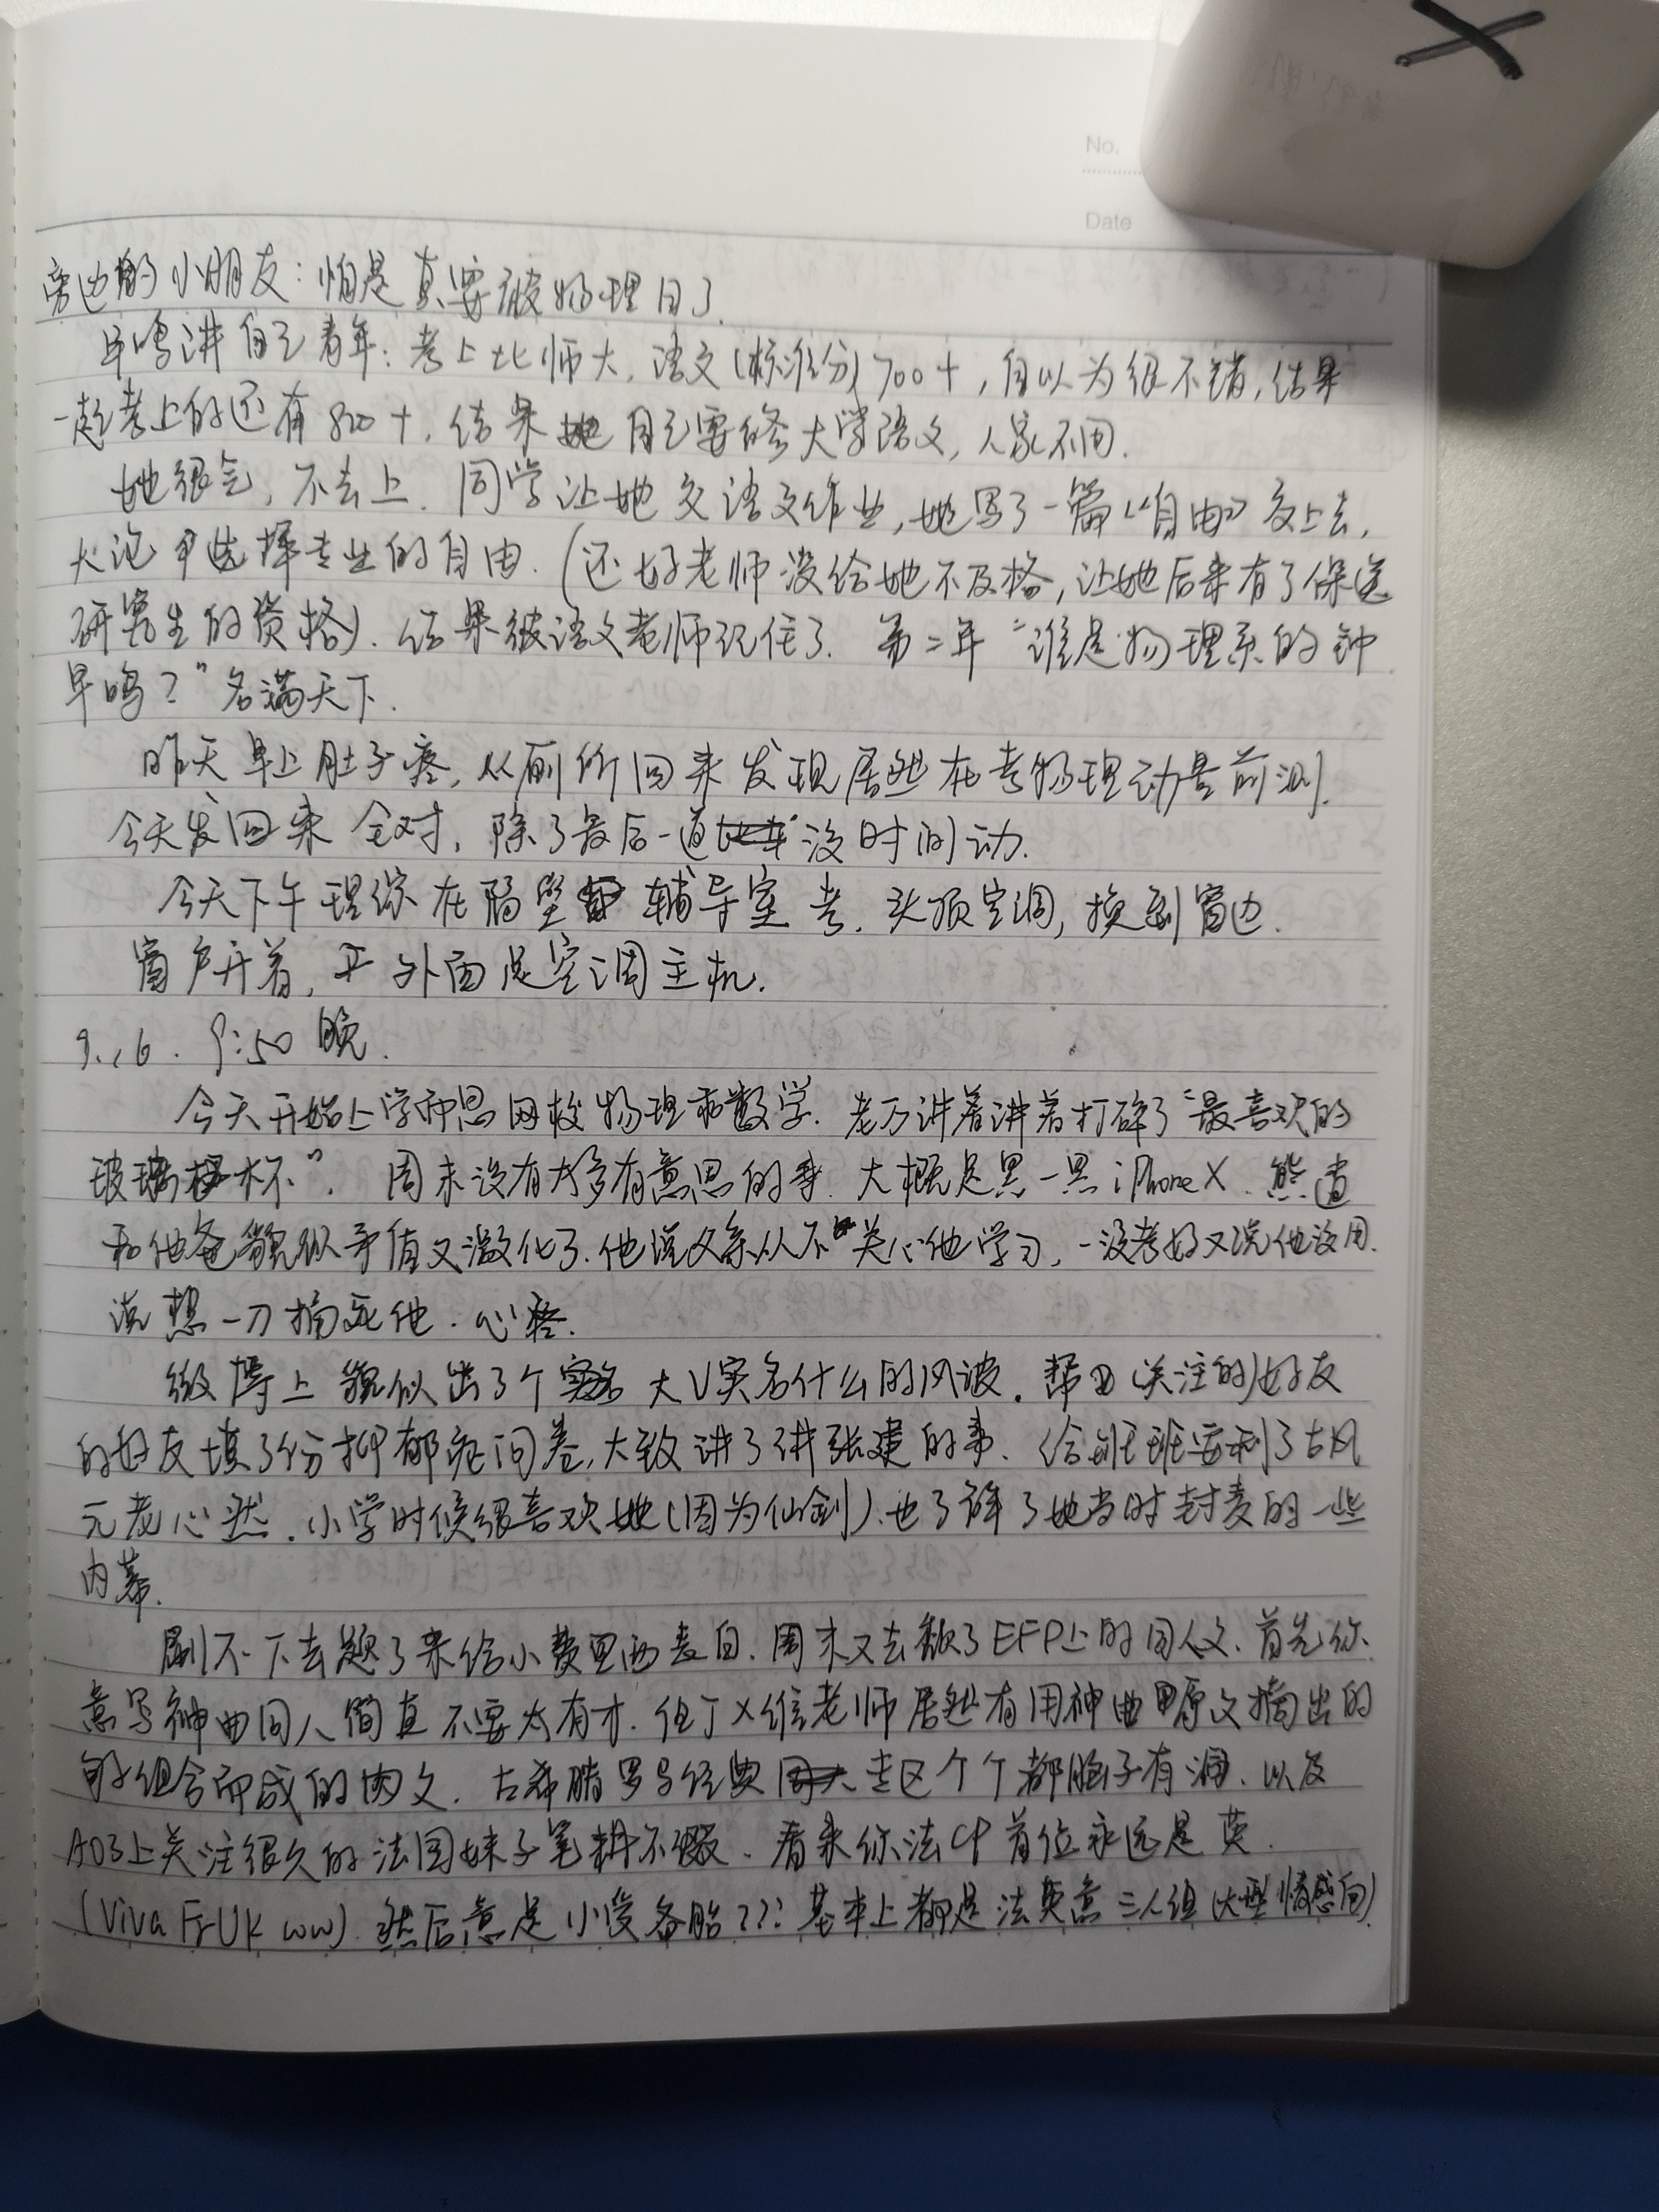 No.
Date
旁边的小朋友：怕是真要被物理日了.
早鸣讲自己青年：考上北师大，语文(标准分)700+，自以为很不错，结果
一起考上的还有800+，结果她自己要修大学语文，人家不用.
她很气，不去上. 同学让她交语文作业，她写了一篇《自由》交上去，
大论选择专业的自由.(还好老师没给她不及格，让她后来有了保送
研究生的资格). 结果被语文老师记住了. 第二年“谁是物理系的钟
早鸣？”名满天下.
昨天早上肚子疼，从厕所回来发现居然在考物理动量前测.
今天发回来全对，除了最后一道没时间动.
今天下午理综在隔壁辅导室考. 头顶空调，换到窗边.
窗户开着，正外面是空调主机.
9.16. 9:50 晚.
今天开始上学而思网校物理和数学. 老万讲着讲着打碎了“最喜欢的
玻璃杯”. 周末没有太多有意思的事. 大概是黑一黑iPhone X. 熊
和他爸貌似矛盾又激化了. 他说父亲从不关心他学习，一没考好又说他没用.
说想一刀捅死他. 心疼.
微博上貌似出了个大V实名什么的风波. 帮(关注的)好友
的好友填了份抑郁症问卷，大致讲了讲张建的事. 给班班安利了古风
元老心然. 小学时候很喜欢她(因为仙剑). 也了解了她当时封麦的一些
内幕.
刷不下去题了来给小费里西表白. 周末又去翻了EFP上的同人文. 首先你
意写神曲同人简直不要太有才. 但丁×维老师居然有用神曲原文摘出的
句子组合而成的肉文. 古希腊罗马经典专区个个都脑子有洞. 以及
AO3上关注很久的法国妹子笔耕不辍. 看来你法CP首位永远是英.
(Viva FrUK ww). 然后意是小受备胎??? 基本上都是法英意三人组(大型情感向)